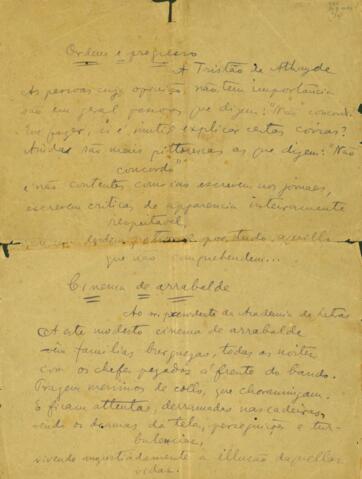 Ordem e progresso
A Tristão de Athayde
As pessoas cuja opinião não tem importância
são em geral pessoas que dizem: "Não concordo".
é inutil explicar certas coisas?
Ainda são mais pittorescas as que dizem: "Não
concordo"
e não contentes com isso escrevem nos jornaes,
escrevem criticas de apparencia inteiramente
respeitavel,
por tudo aquillo
que não comprehendem...
Cinema de arrabalde
Ao presidente da Academia de Letras
A este modesto cinema de arrabalde
vêm familias burguezas, todas as noites
com os chefes pegados á frente do bando.
Trazem meninos de collo, que choramingam.
E ficam attentas, derramadas nas cadeiras,
vendo os dramas da tela, perseguições e tur-
bulencias,
vivendo angustiadamente a illusão daquellas
vidas.